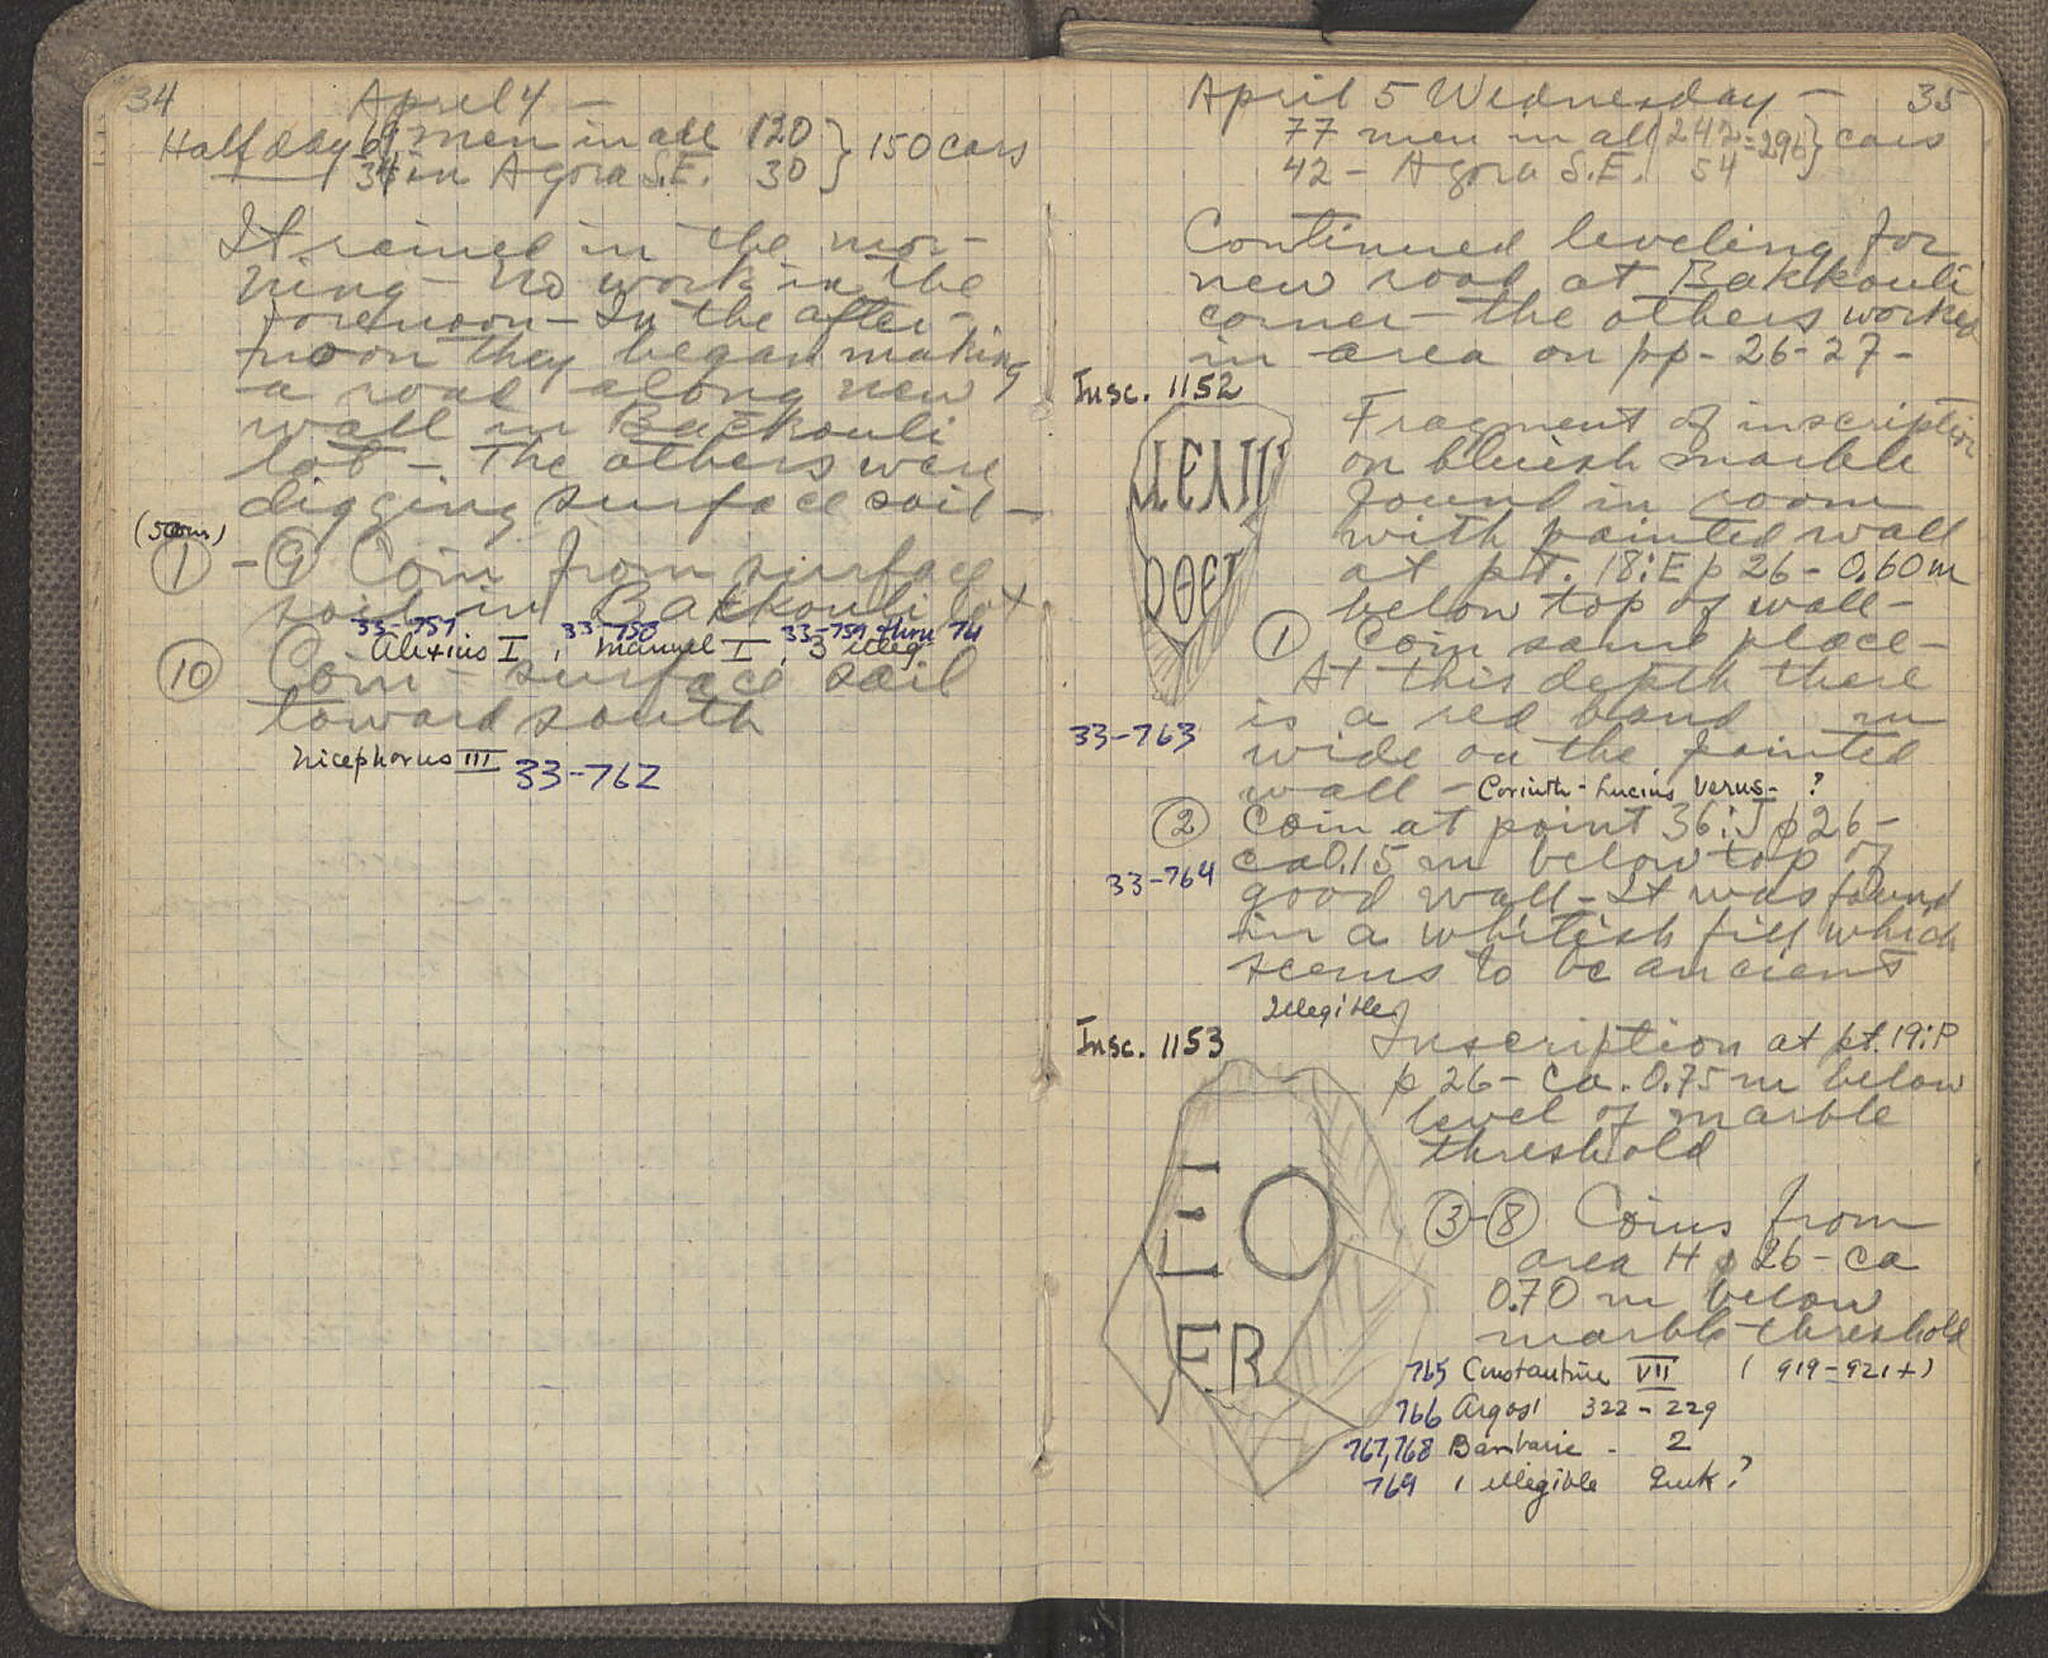 34
April 4 —
Half day 69 men in all 120 } 150 cars
34 in Agora S.E. 30
It rained in the mor-
ning - No work in the
forenoon - In the after-
noon they began making
a road along new
wall in Backouli
lot - The others were
digging surface soil -
①-⑨ Coin from surface
soil in Bakkouli lot
33-757 33-758 33-759 thru 761
Alexius I, Manuel I, 3 illeg.
⑩ Coin - surface soil
toward south
Nicephorus III 33-762
April 5 Wednesday — 35
77 men in all 242 = 296 } cars
42 - Agora S.E. 54
Continued leveling for
new road at Bakkouli
corner - the others worked
in area on pp- 26-27-
Insc. 1152
Fragment of inscription
on bluish marble
found in room
with painted wall
at pt. 18:E p 26 - 0.60 m
below top of wall -
① Coin same place -
At this depth there
is a red band m
33-763
wide on the painted
wall - Corinth - Lucius Verus- ?
② Coin at point 36:J p 26 -
ca 0.15 m below top of
33-764
good wall - It was found
in a whitish fill which
seems to be ancient
Illegible
Insc. 1153
Inscription at pt. 19:P
p 26 - ca. 0.75 m below
level of marble
threshold
EO
ER
③-⑧ Coins from
area H p 26 - ca
0.70 m below
marble threshold
765 Constantine VII (919-921+)
766 Argos 322-229
767,768 Barbaric - 2
769 1 illegible Greek?